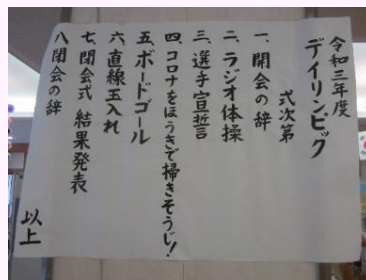 令和三年度
デイリンピック
式次第
一、開会の辞
二、ラジオ体操
三、選手宣誓
四、コロナをほうきで掃きそうじ!
五、ボードゴール
六、直線玉入れ
七、閉会式 結果発表
八、閉会の辞
以上